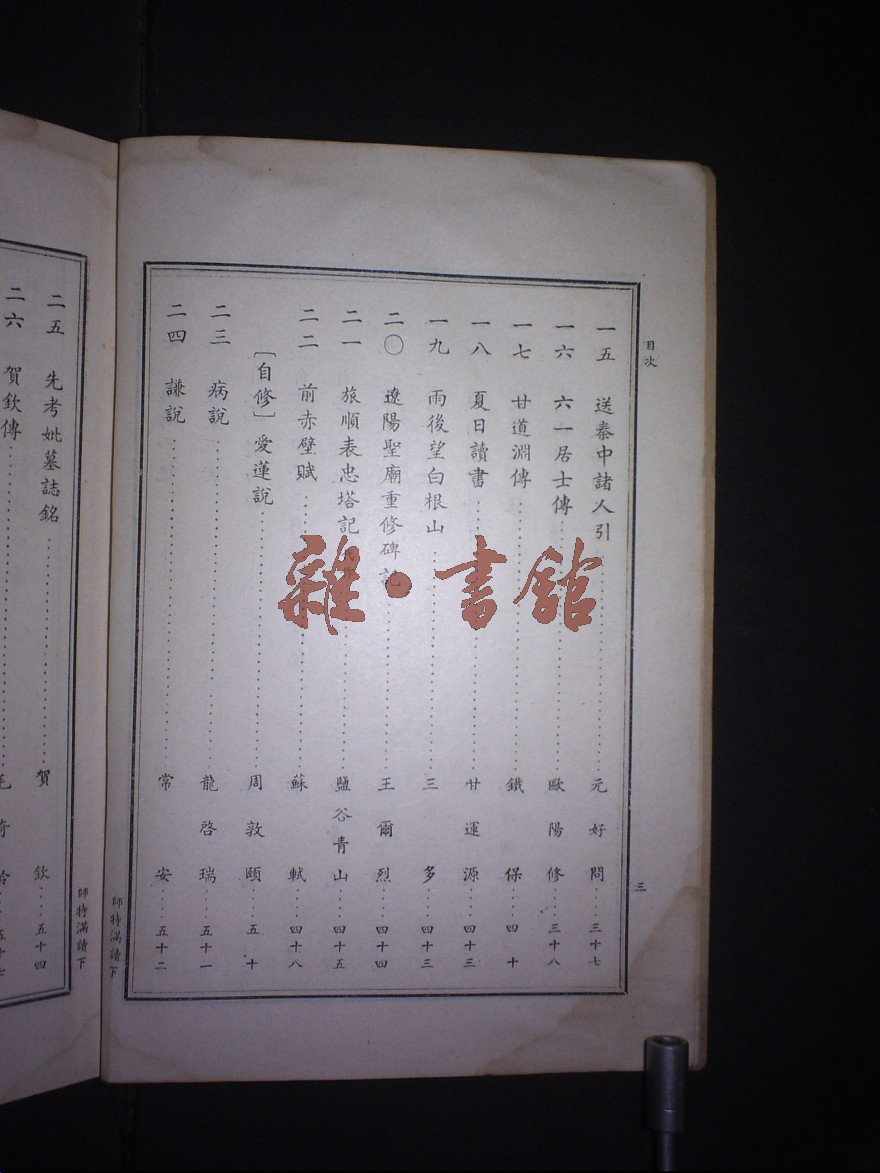 目次
一五 送秦中諸人引 元好問 三十七
一六 六一居士傳 歐陽修 三十八
一七 甘道淵傳 鐵保 四十
一八 夏日讀書 甘運源 四十三
一九 雨後望白根山 三多 四十三
二〇 遼陽聖廟重修碑記 王爾烈 四十四
二一 旅順表忠塔記 鹽谷青山 四十五
二二 前赤壁賦 蘇軾 四十八
［自修］愛蓮說 周敦頤 五十
二三 病說 龍啓瑞 五十一
二四 謙說 常安 五十二
三
師特滿讀下
二五 先考妣墓誌銘 賀欽 五十四
二六 賀欽傳 毛奇齡
師特滿讀下
雜·書館